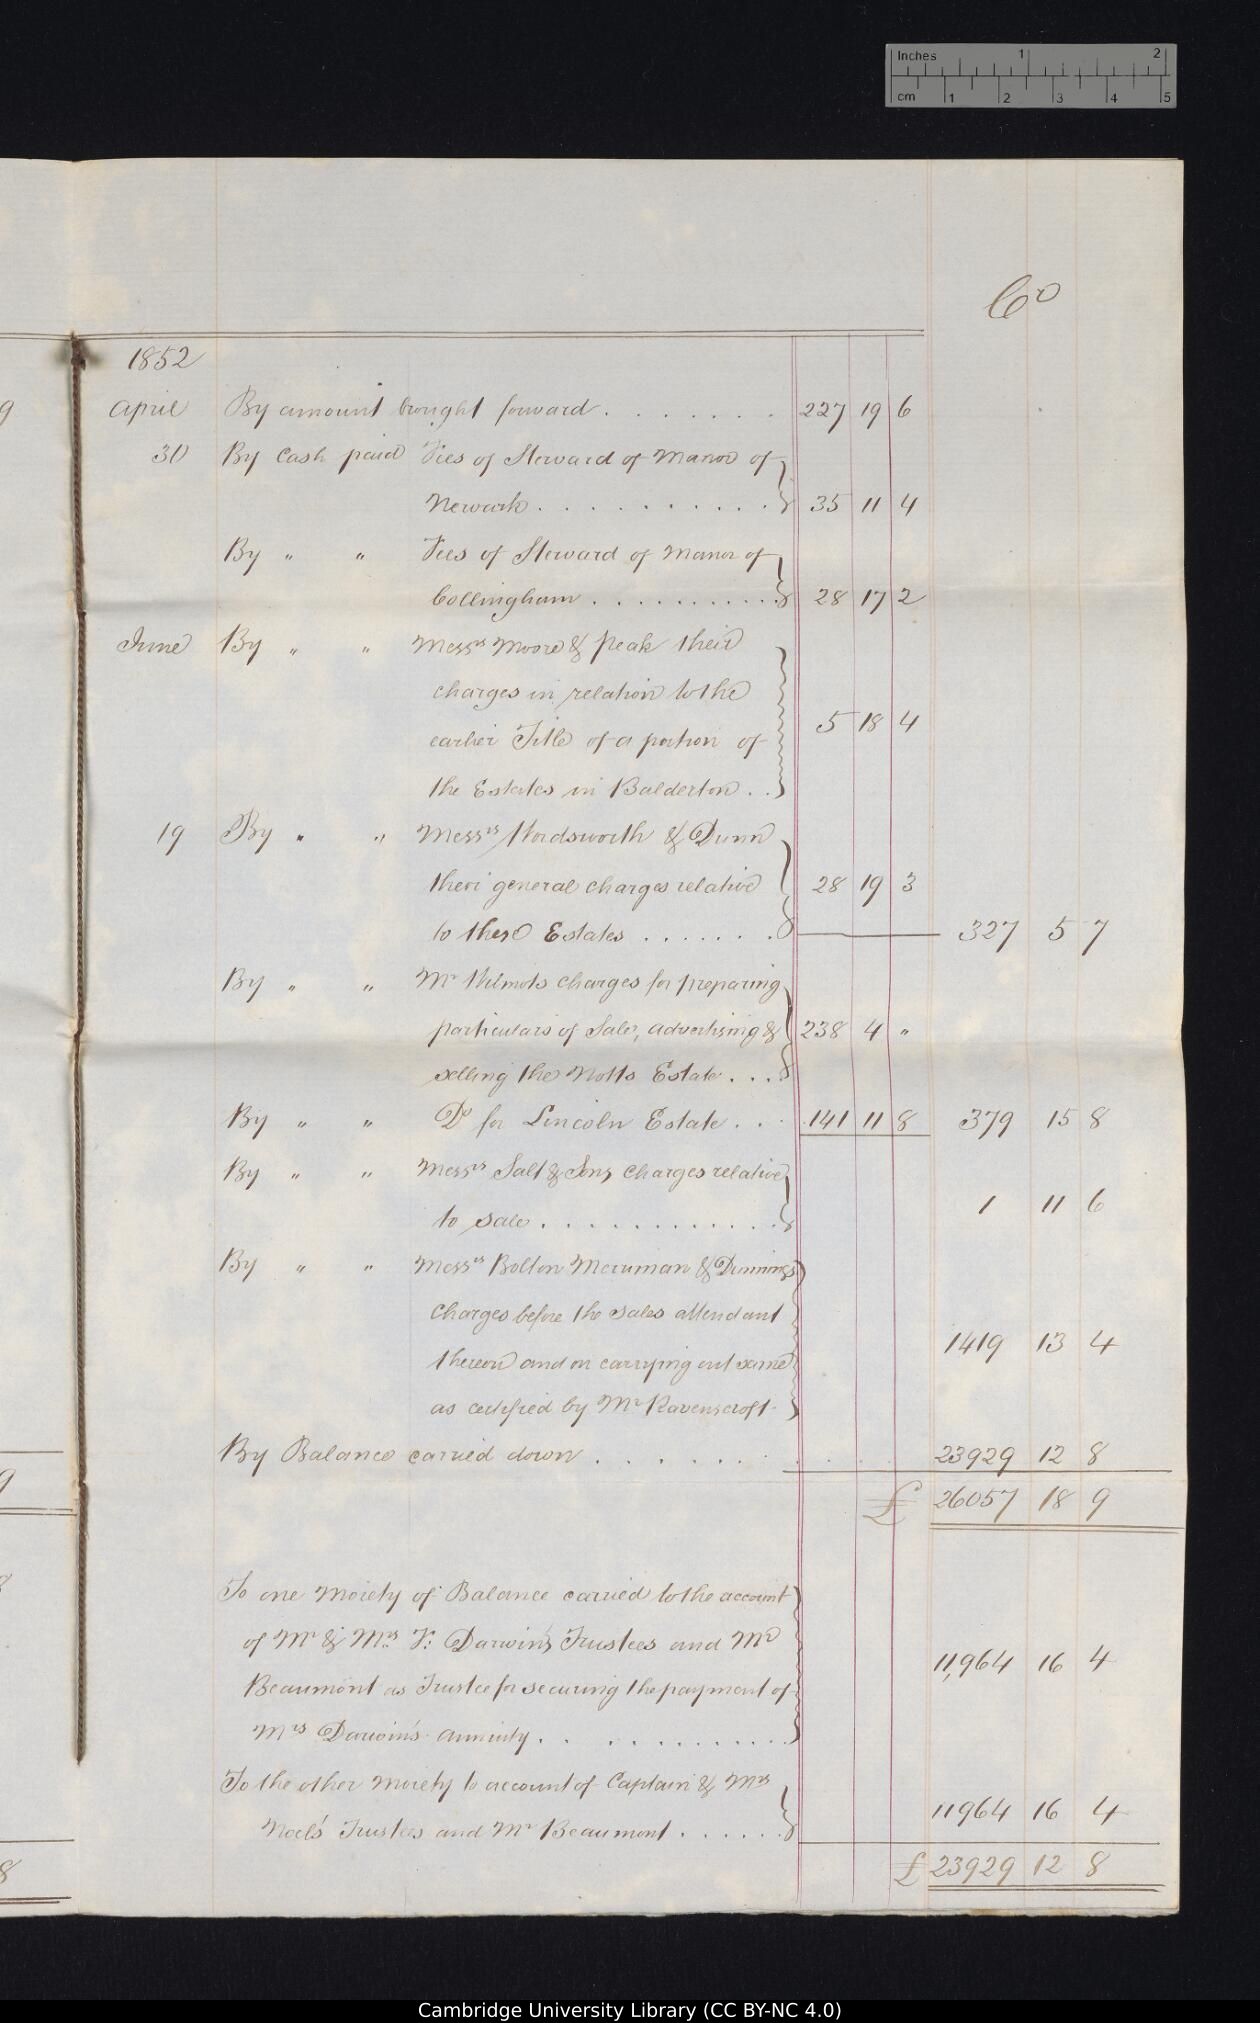 Inches 1 2
cm 1 2 3 4 5
Co
1852
April By amount brought forward . . . . . . . 227 19 6
30 By Cash paid Fees of Steward of Manor of
Newark . . . . . . . . . . . 35 11 4
By " " Fees of Steward of Manor of
Collingham . . . . . . . . . . 28 17 2
June By " " Messrs Moore & Peak their
charges in relation to the
earlier Title of a portion of 5 18 4
the Estates in Balderton . .
19 By " " Messrs Wordsworth & Dunn
their general charges relative 28 19 3
to these Estates . . . . . . . 327 5 7
By " " Mr Wilmots charges for preparing
particulars of Sale, advertising & 238 4 "
selling the Notts Estate . . .
By " " Do for Lincoln Estate . . . 141 11 8 379 15 8
By " " Messrs Salt & Sons Charges relative
to sale . . . . . . . . . . . . 1 11 6
By " " Messrs Bolton Merriman & Dinnings
Charges before the sales attendant
thereon and on carrying out same 1419 13 4
as certified by Mr Ravenscroft
By Balance carried down . . . . . . . . . . 23929 12 8
£ 26057 18 9
To one Moiety of Balance carried to the account
of Mr & Mrs F: Darwin's Trustees and Mr
Beaumont as Trustee for securing the payment of 11,964 16 4
Mrs Darwin's annuity . . . . . . . . . . .
To the other Moiety to account of Captain & Mrs
Noel's Trustees and Mr Beaumont . . . . . . 11964 16 4
£ 23929 12 8
9
9
8
Cambridge University Library (CC BY-NC 4.0)